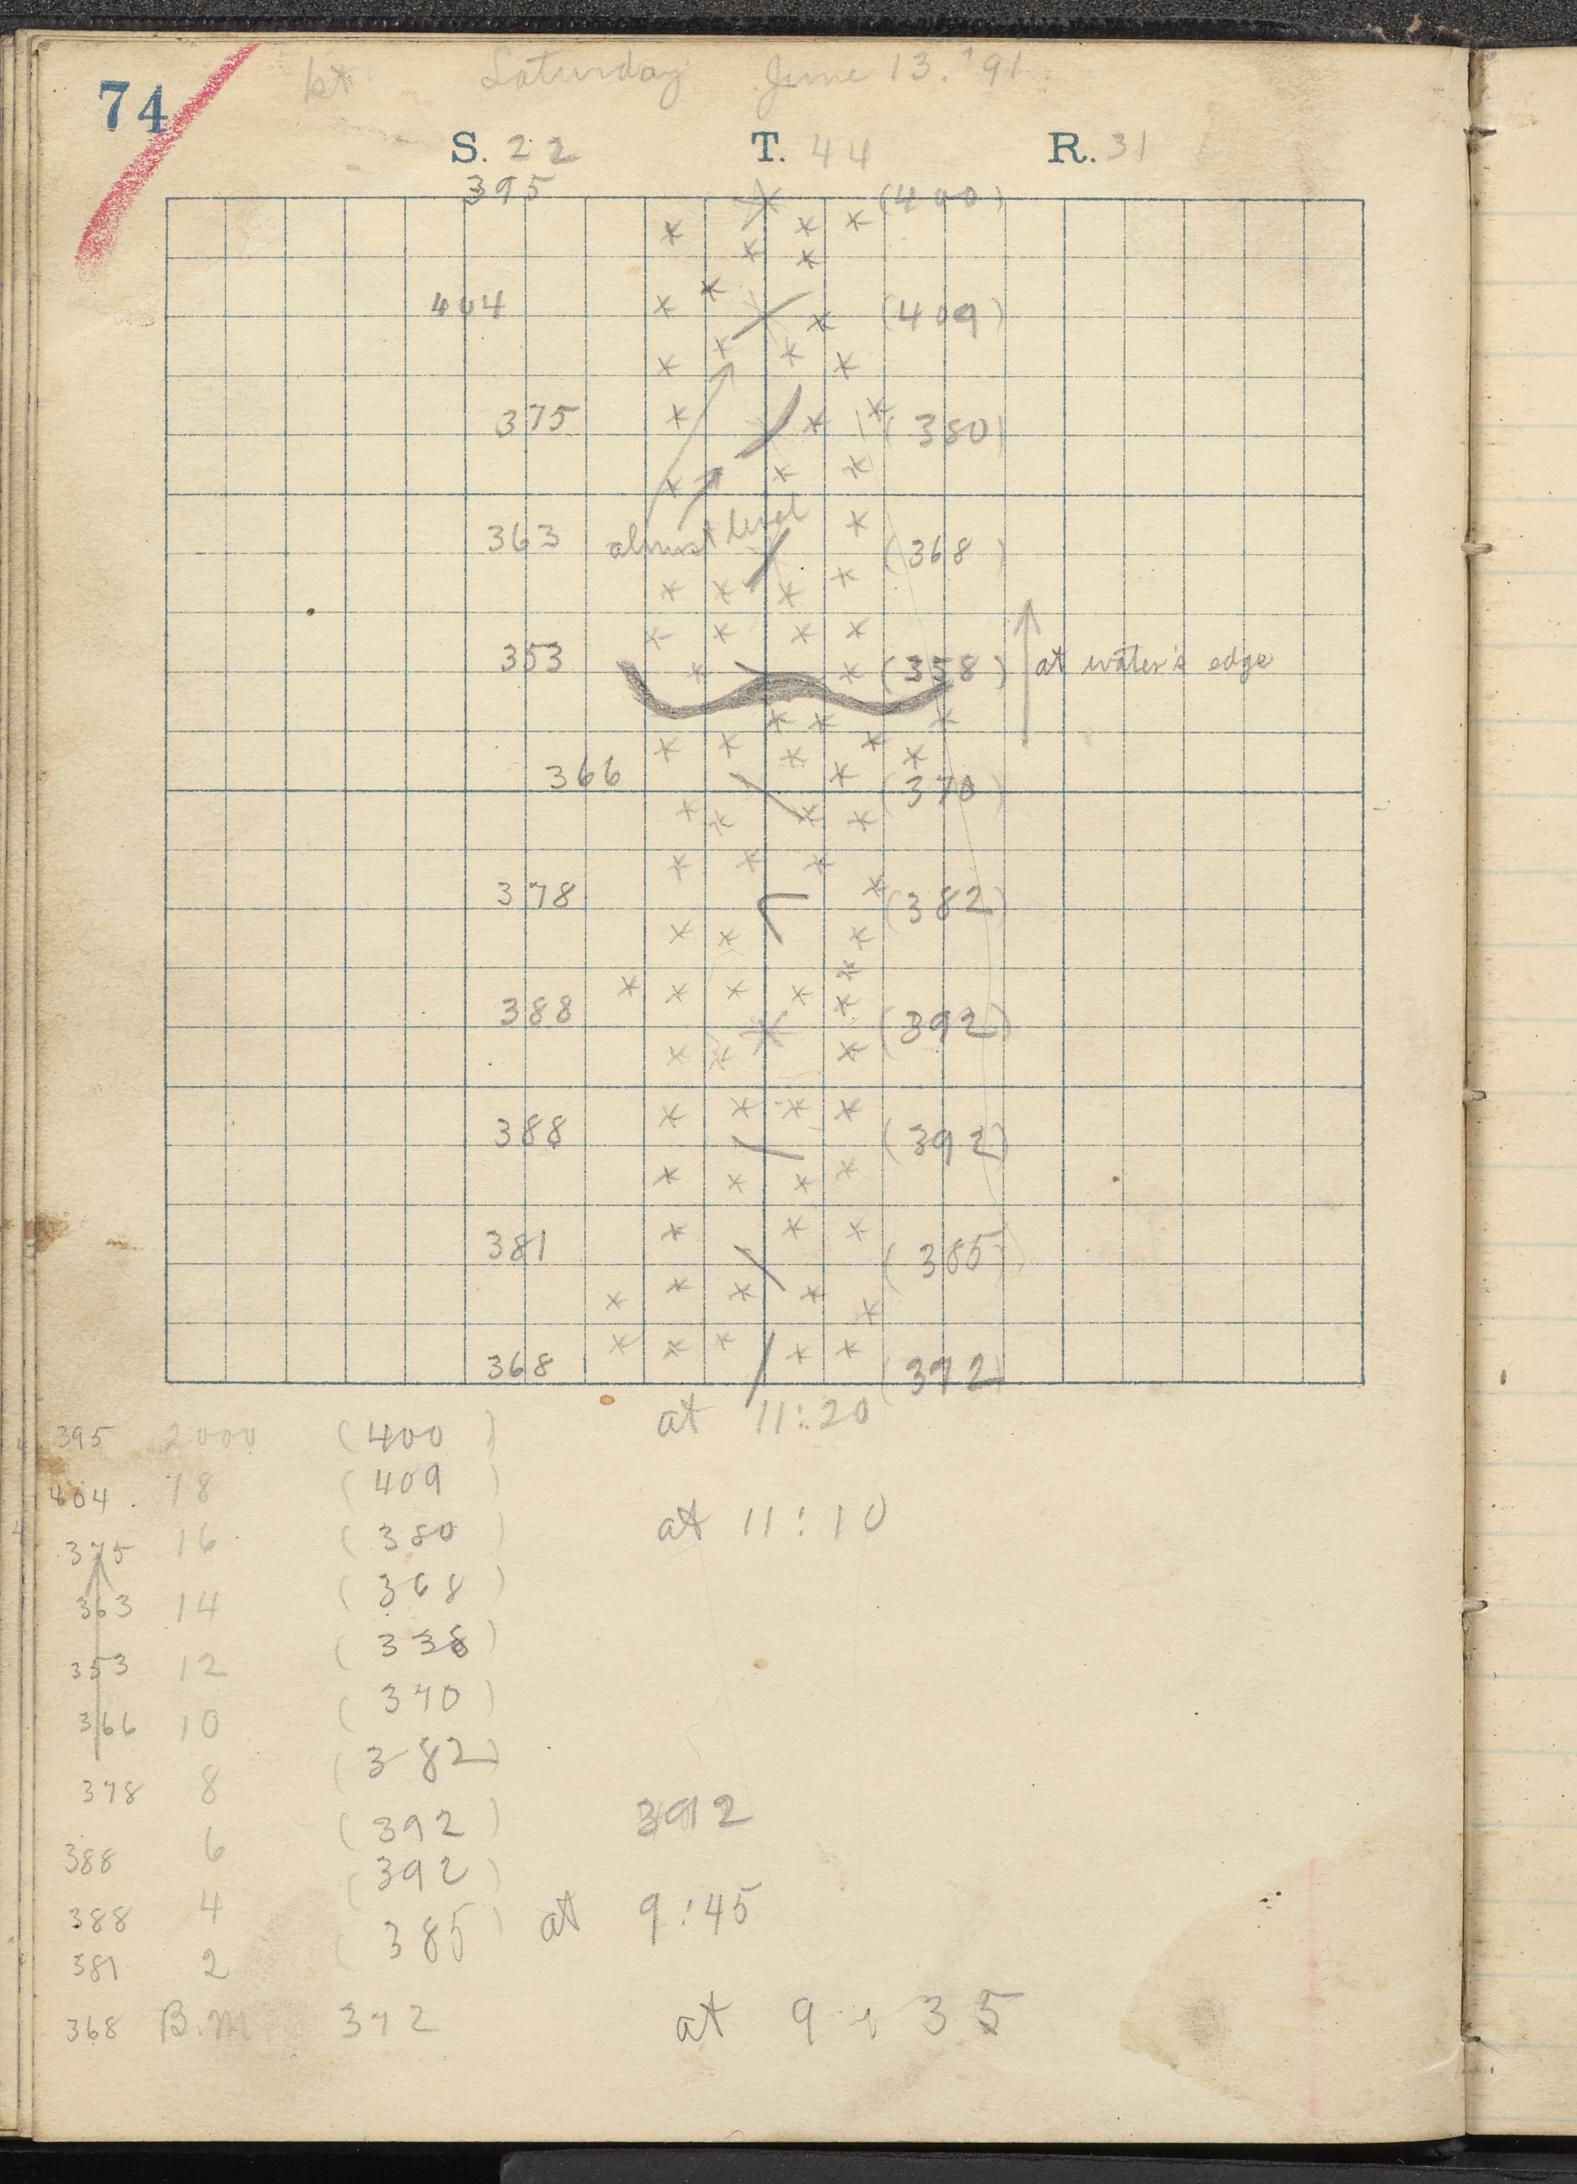 74 Saturday June 13. '91
S. 22 T. 44 R. 31
395 (400)
404 (409)
375 (380)
363 almost level (368)
353 (358) at water's edge
366 (370)
378 (382)
388 (392)
388 (392)
381 (385)
368 (372)
at 11:20
395 2000 (400)
404 18 (409)
at 11:10
375 16 (380)
363 14 (368)
353 12 (338)
366 10 (370)
378 8 (382)
388 6 (392) 392
388 4 (392)
381 2 (385) at 9:45
368 B.M. 372 at 9:35